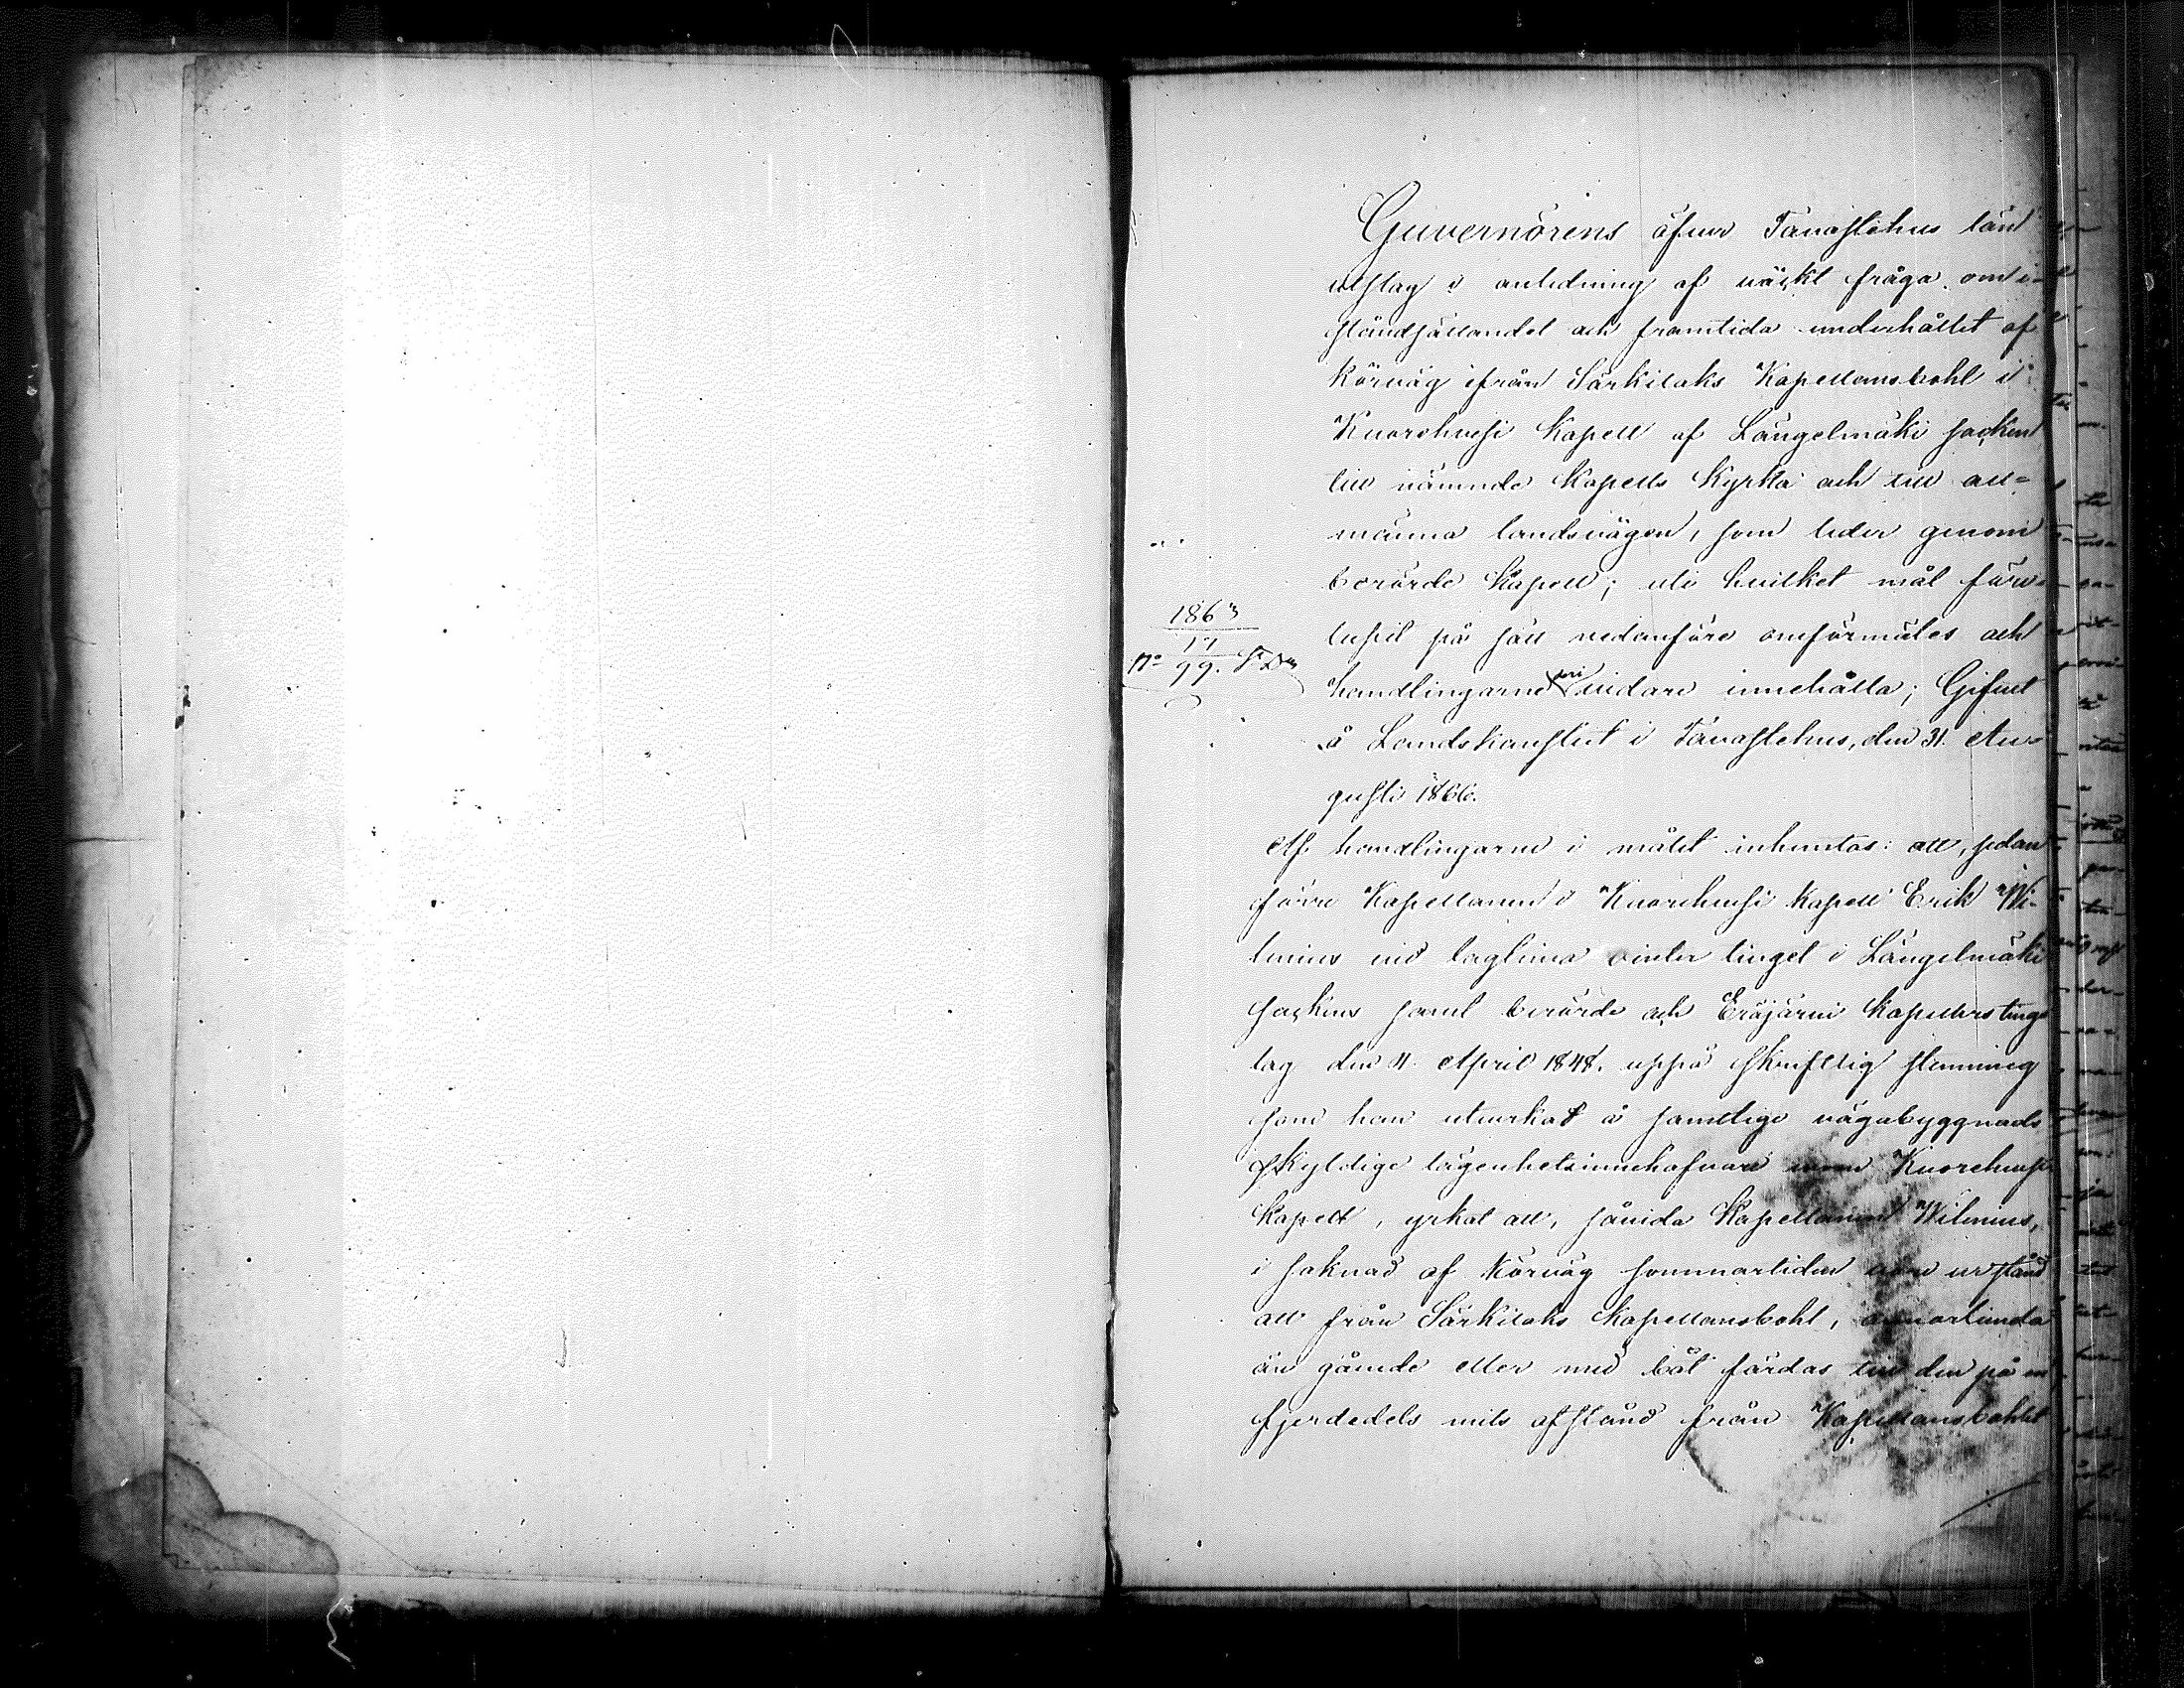 Guvernörens öfver Tavastehus län
utslag i anledning af väckt fråga om i-
ståndsättandet och framtida underhållet af
körväg ifrån Särkilaks Kapellansbohl i
Kuorehvesi Kapell af Längelmäki socken
till nämnde Kapells Kyrka och till all-
männa landsvägen, som leder genom
berörde Kapell; uti hvilket mål för-
1863
17
No 99.
lupit på sätt nedanföre omförmäles och
handlingarne vidare innehålla; Gifvet
å Landskansliet i Tavastehus, den 31. Au-
gusti 1866.
Af handlingarne i målet inhemtas: att, sedan
förre Kapellanen i Kuorehvesi Kapell Erik Wi-
lenius vid laglima vintertinget i Längelmäki
sockens samt berörde och Eräjärvi Kapellers tings
lag den 4. April 1848. uppå skriftlig stemning
som han utverkat å samtlige vägabyggnads
skyldige lägenhetsinnehafvare inom Kuorehvesi
Kapell, yrkat att, såvida Kapellanen Wilenius,
i saknad af Körväg sommartiden vore urstånd
att från Särkilaks Kapellansbohl, annorlunda
än gående eller med båt färdas till den på en
fjerdedels mils afstånd från Kapellansbohlet